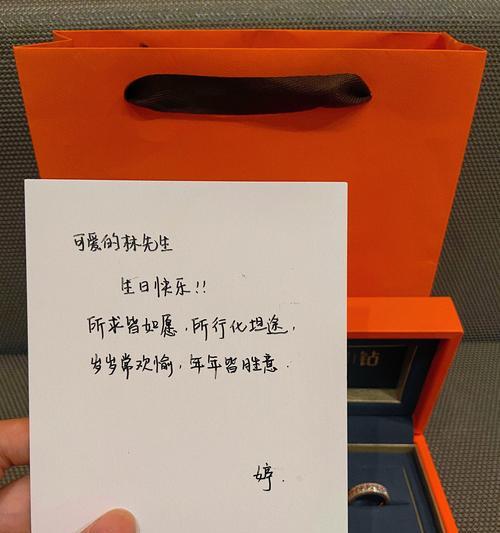 可爱的林先生
生日快乐!!
所求皆如愿,所行化坦途,
岁岁常欢愉,年年皆胜意.
婷.
钻